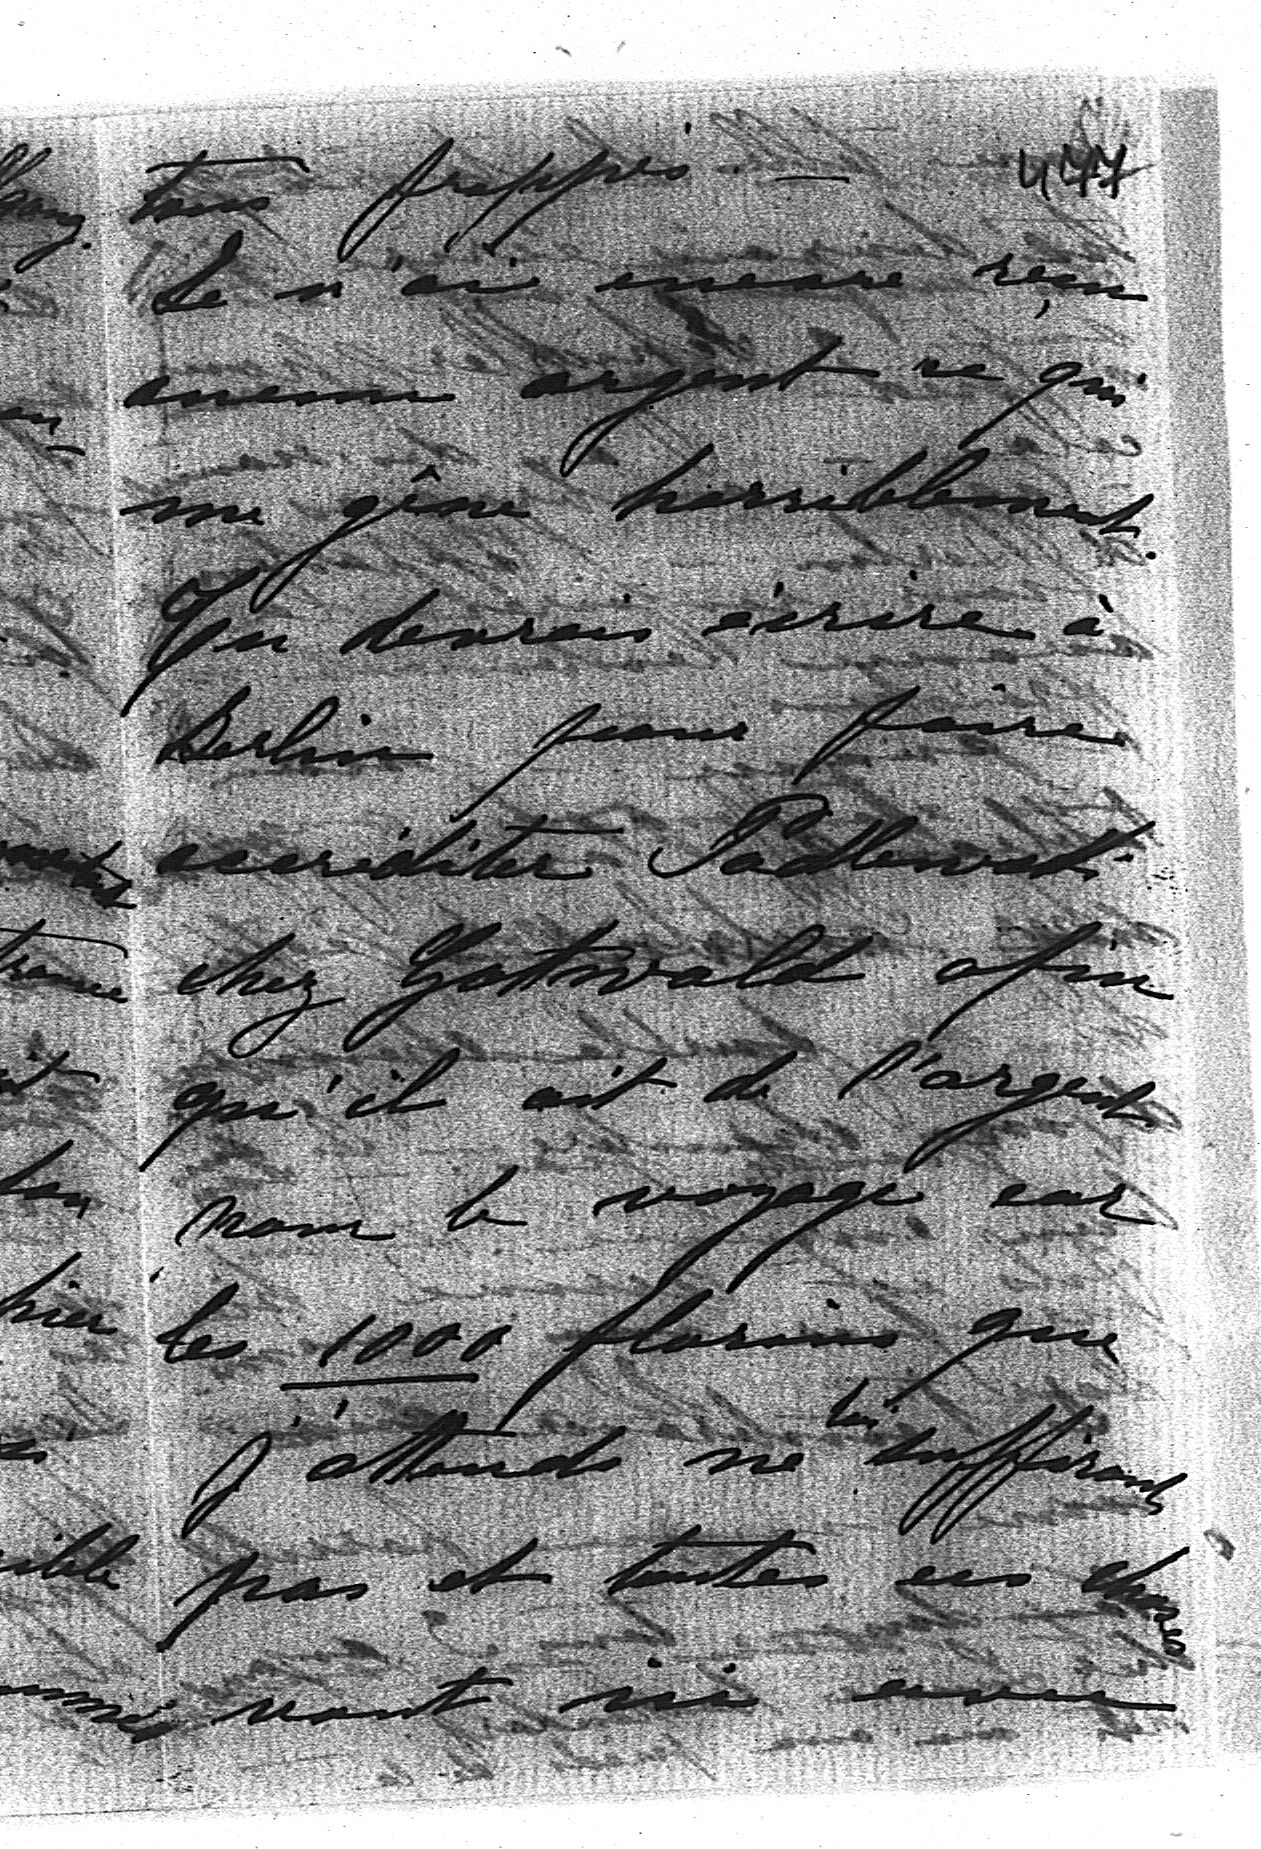 477
tous frappés. —
Je n'ai encore reçu
aucun argent ce qui
me gêne horriblement.
Tu devrais écrire à
Berlin pour faire
accréditer Padlewski
chez Gottwald afin
qu'il ait de l'argent
pour le voyage car
les 1000 florins que
j'attends ne lui suffiront
pas et toutes ces choses
vont ici avec